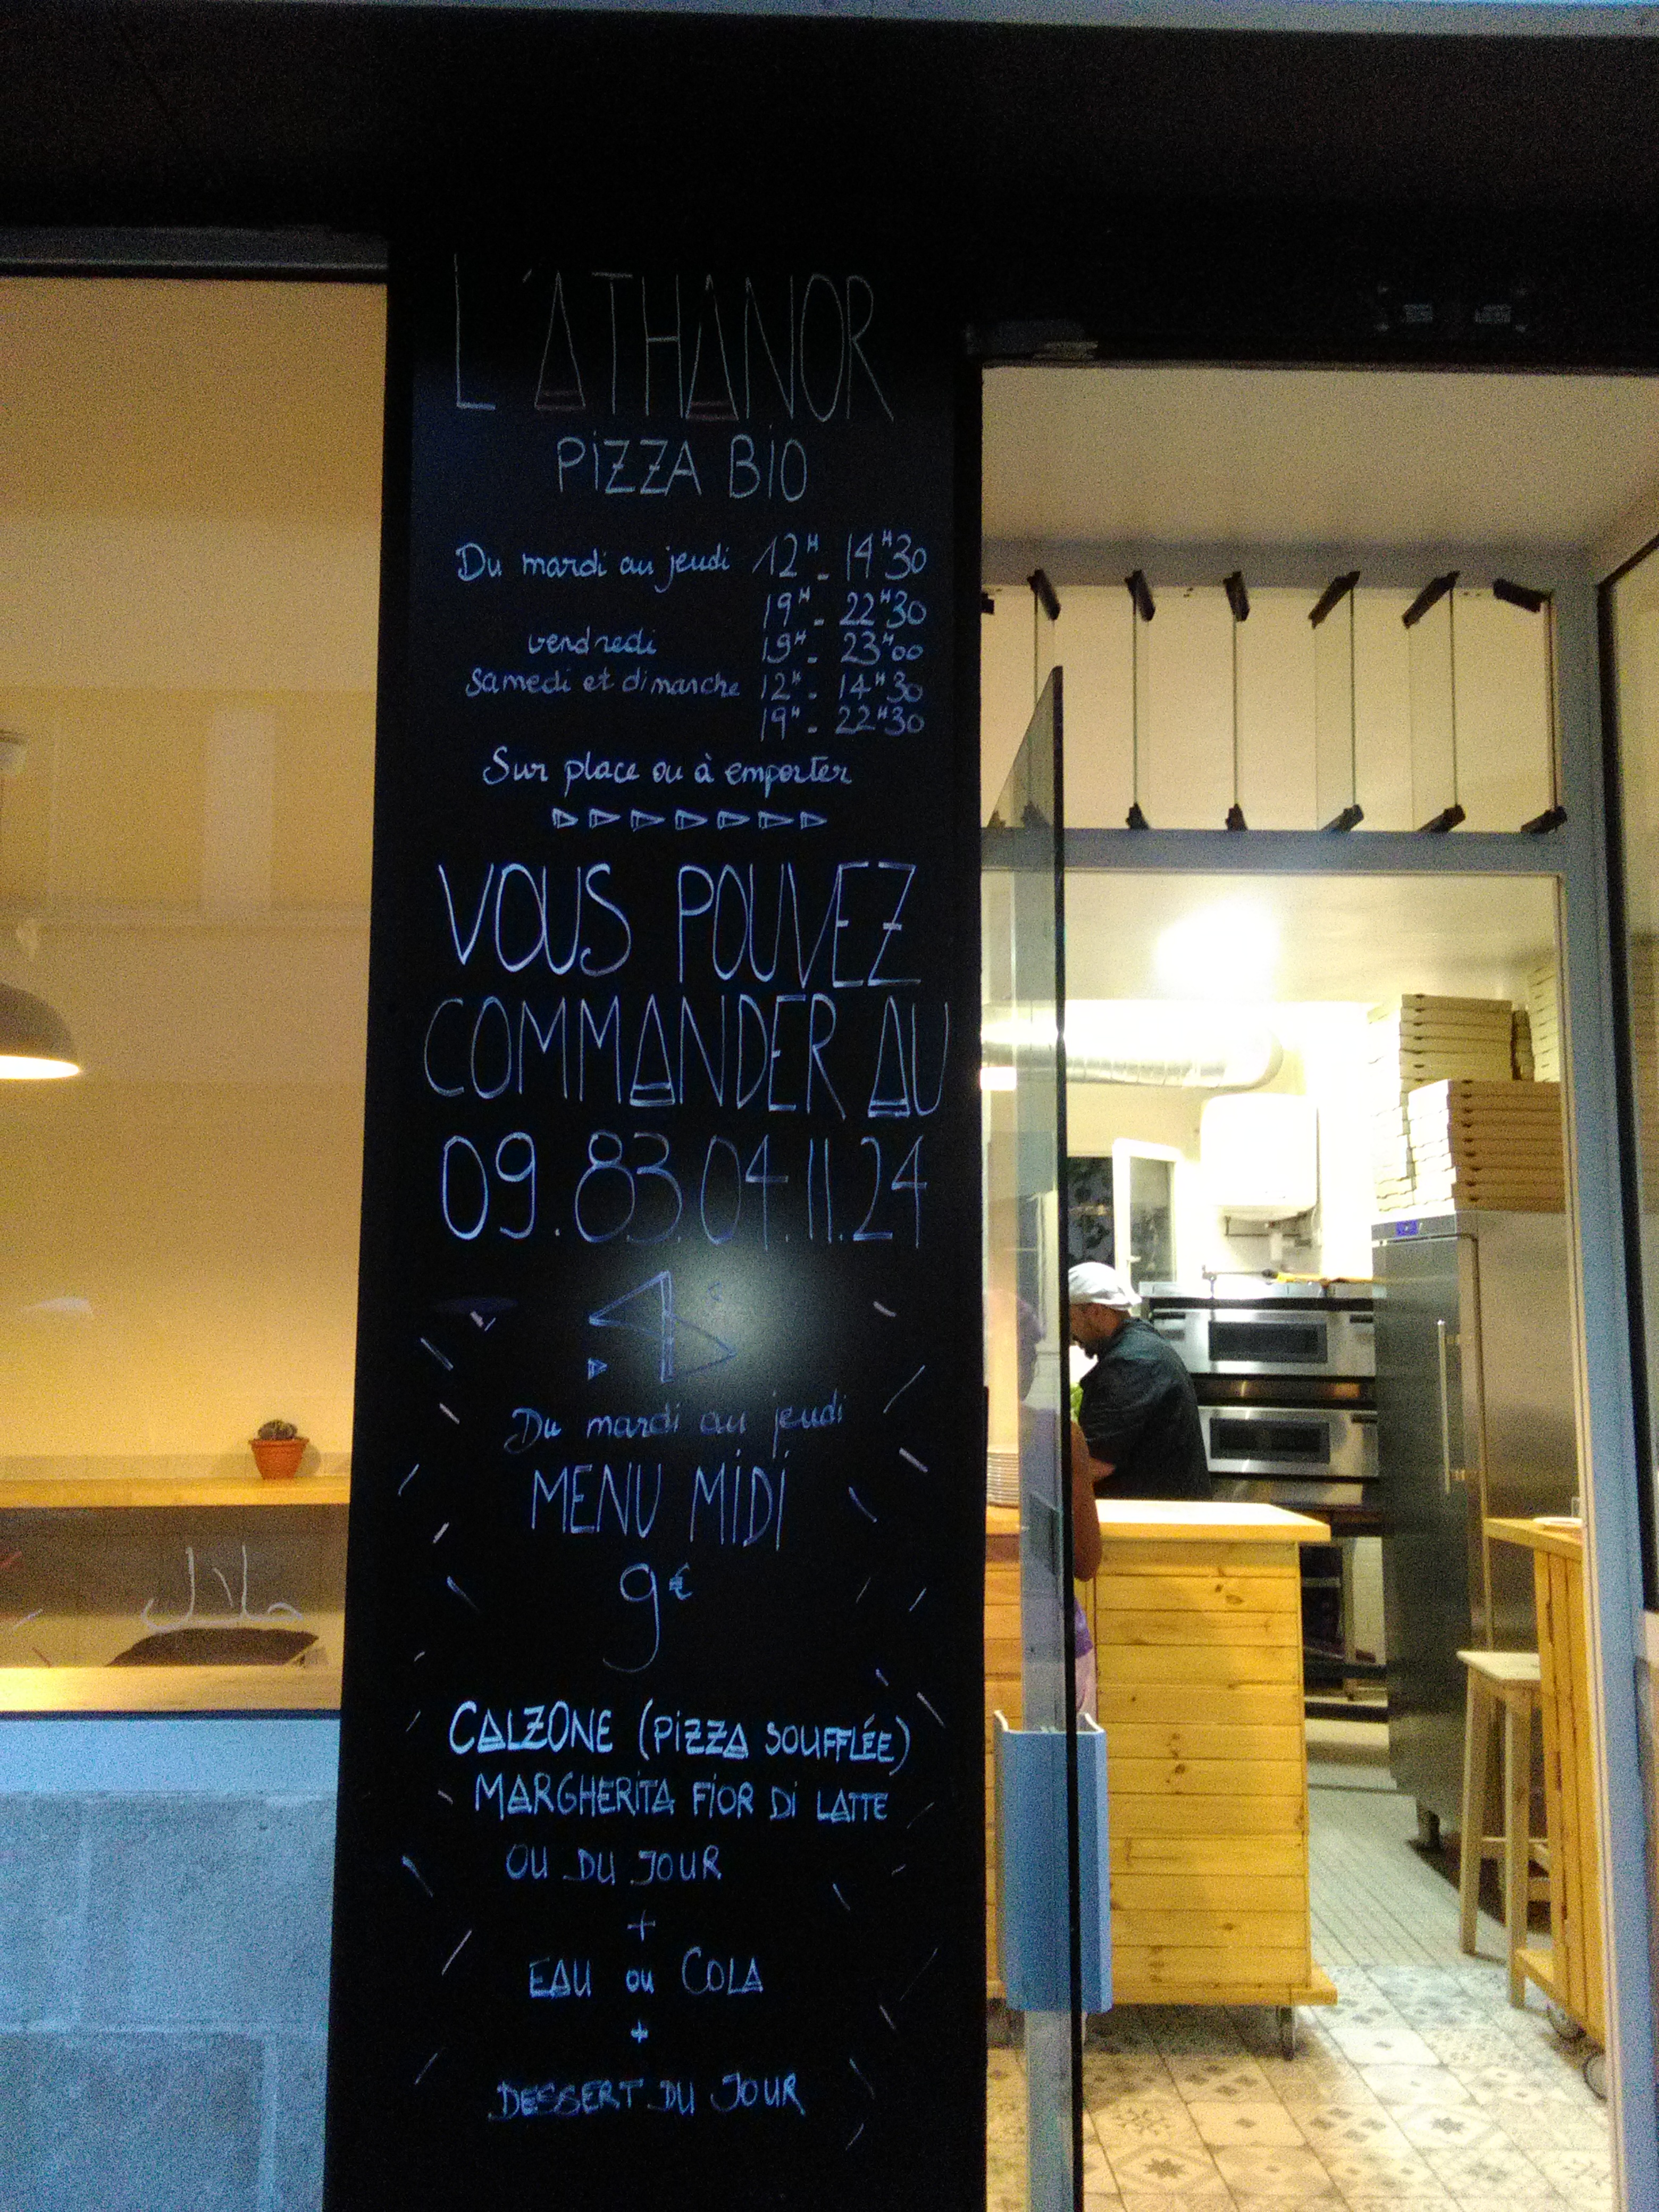 L'ATHANOR
PIZZA BIO
Du mardi au jeudi 12H - 14H30
19H - 22H30
vendredi 19H - 23H00
Samedi et dimanche 12H - 14H30
19H - 22H30
Sur place ou à emporter
VOUS POUVEZ
COMMANDER AU
09.83.04.11.24
Du mardi au jeudi
MENU MIDI
9€
CALZONE (PIZZA SOUFFLÉE)
MARGHERITA FIOR DI LATTE
OU DU JOUR
+
EAU ou COLA
+
DESSERT DU JOUR
حلال